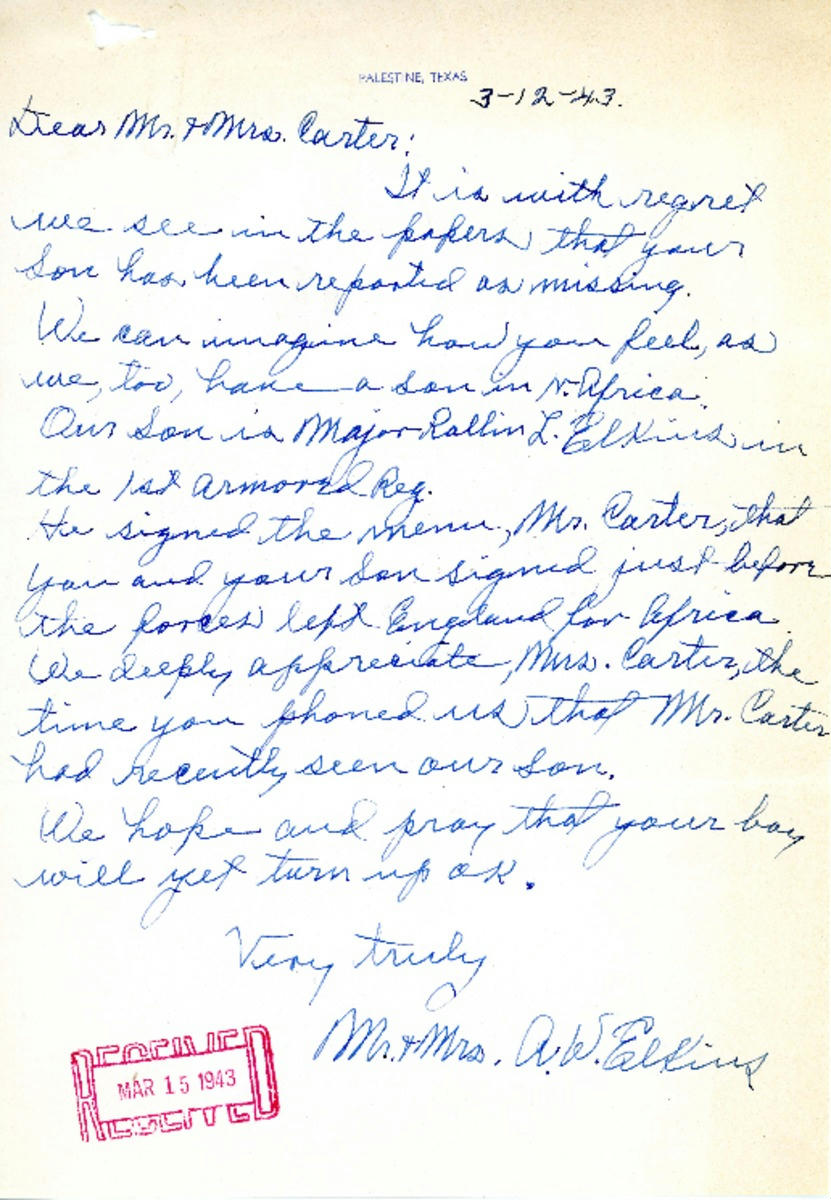 PALESTINE, TEXAS
3-12-43.
Dear Mr. & Mrs. Carter:
It is with regret
we see in the papers that your
son has been reported as missing.
We can imagine how you feel, as
we, too, have a son in N. Africa.
Our son is Major Rollin L. Elkins in
the 1st Armored Reg.
He signed the menu, Mr. Carter, that
you and your son signed just before
the forces left England for Africa.
We deeply appreciate, Mrs. Carter, the
time you phoned us that Mr. Carter
had recently seen our son.
We hope and pray that your boy
will yet turn up ok.
Very truly
Mr. & Mrs. A. W. Elkins
RECEIVED
MAR 15 1943
RECEIVED